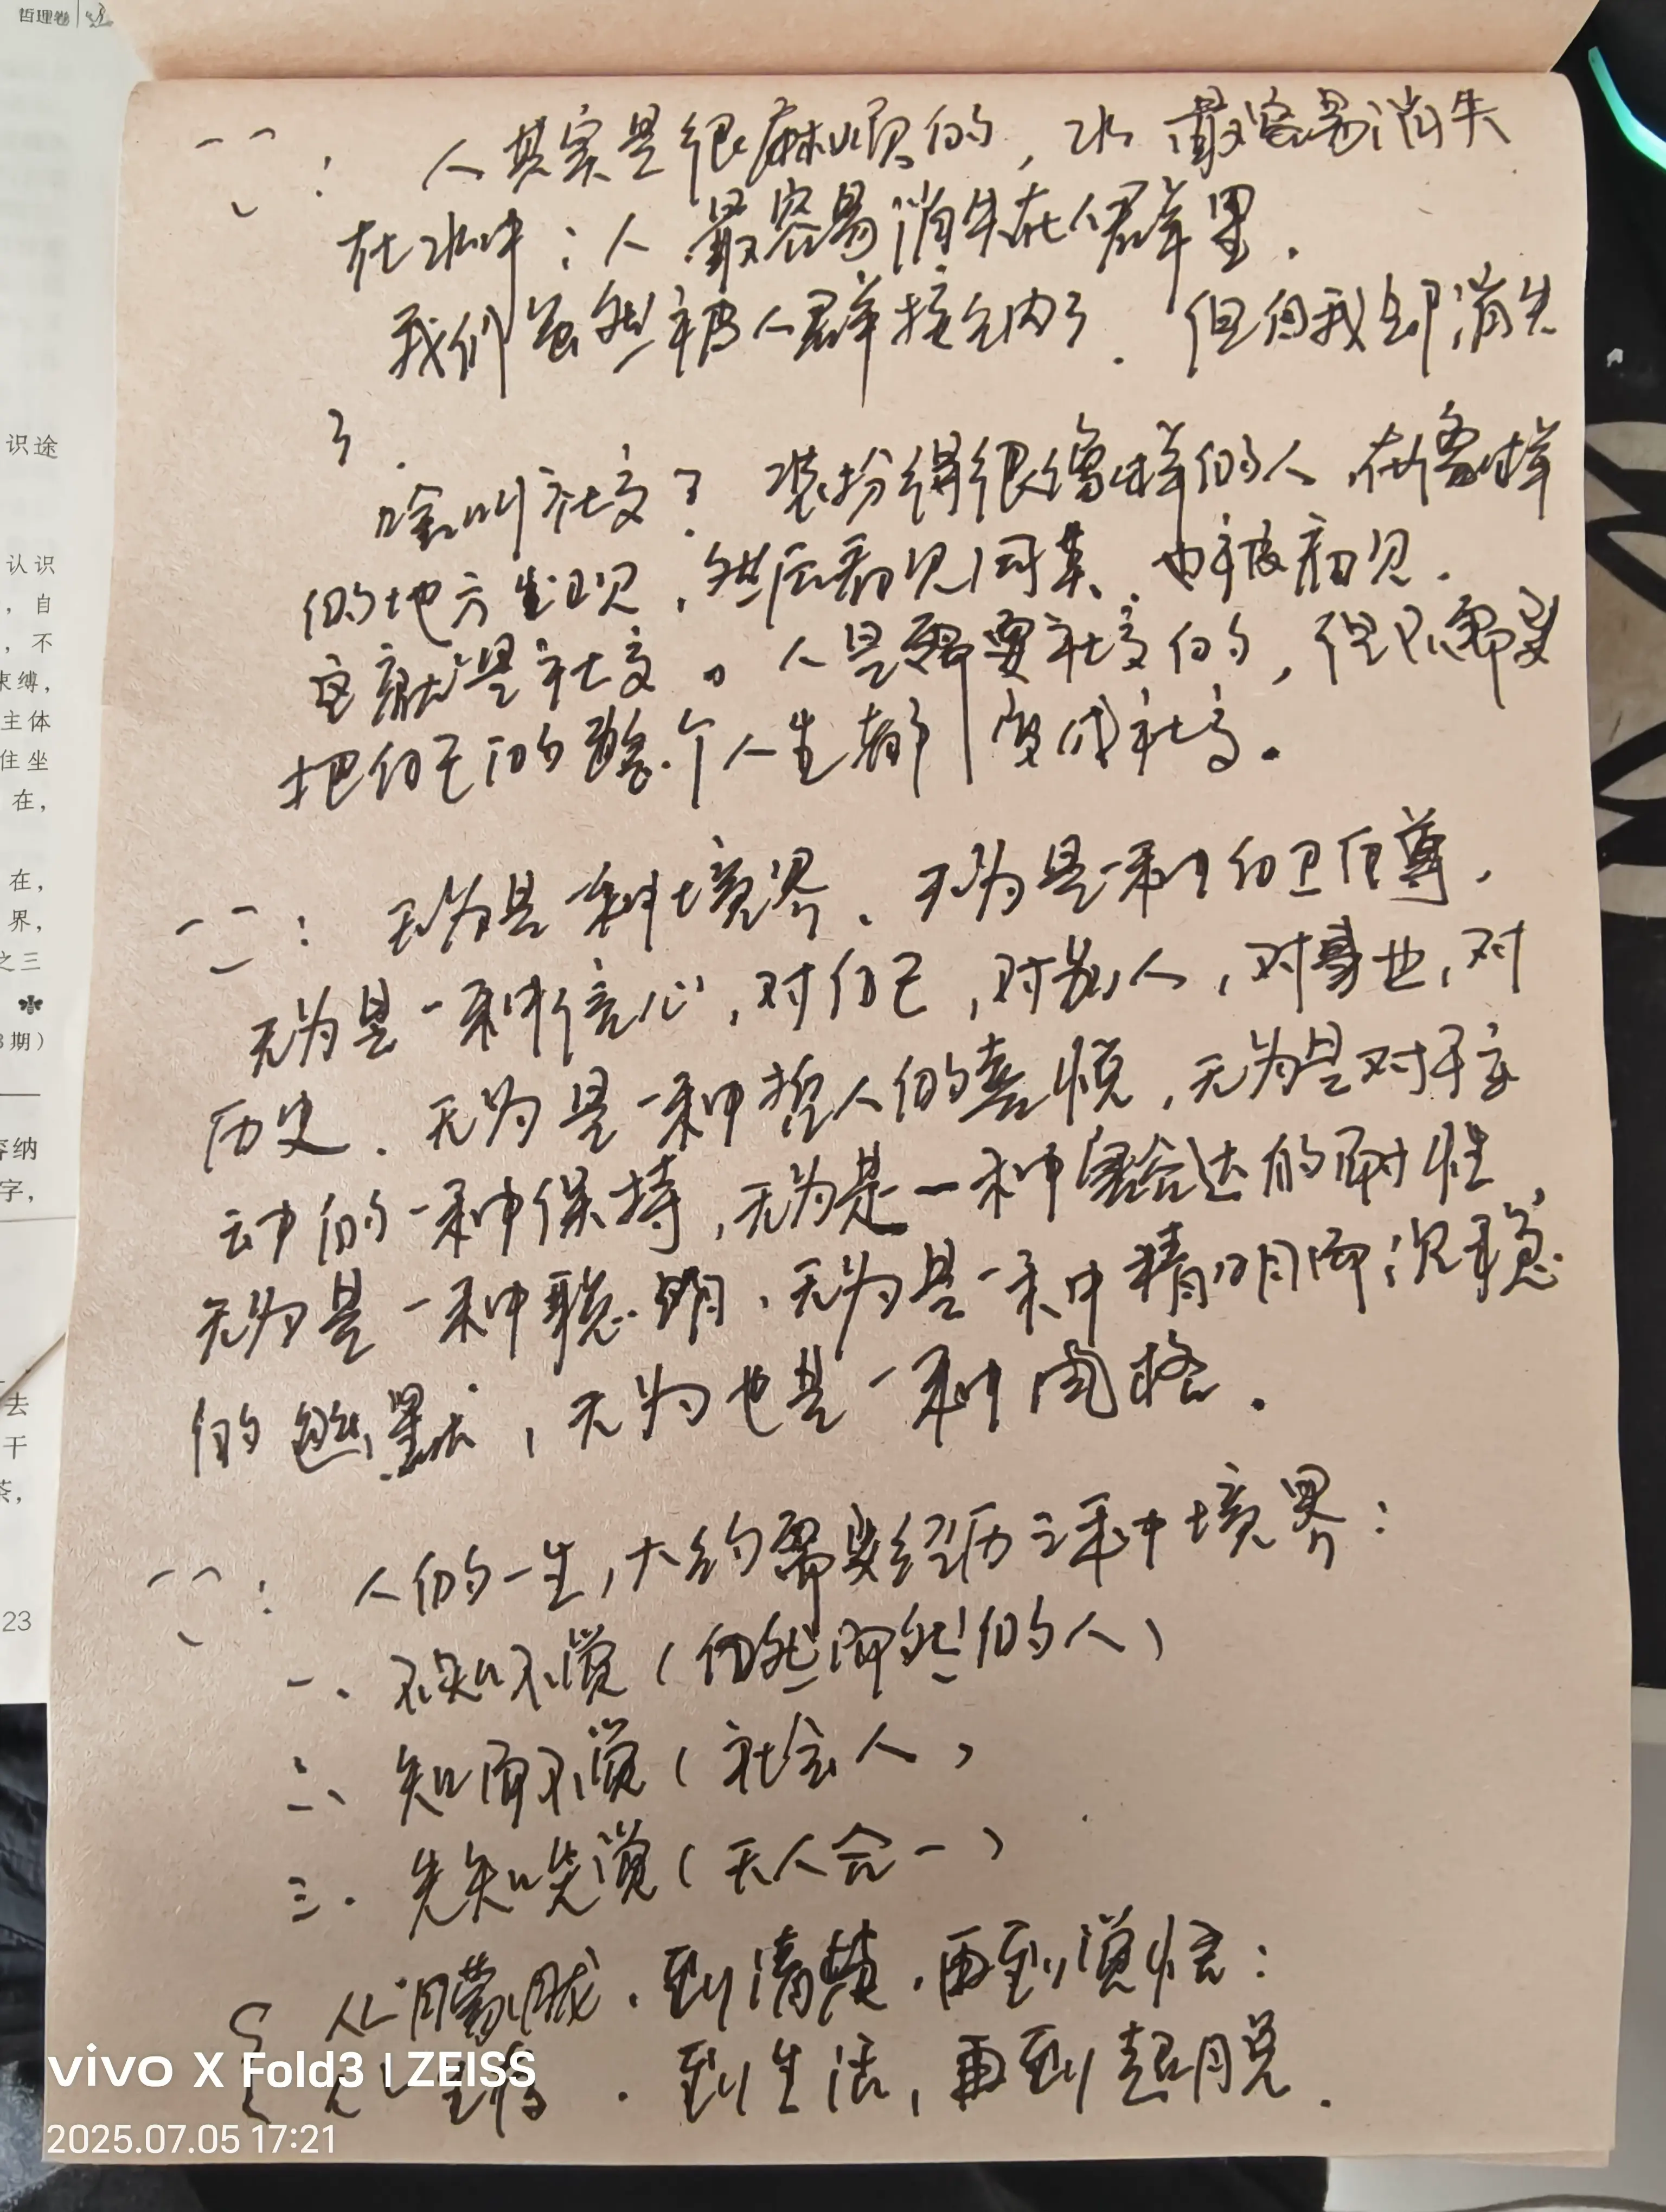 哲理卷
人其实是很麻烦的，水最容易消失
在水中；人最容易消失在人群里.
我们虽然被人群接纳了. 但自我却消失
了.
啥叫社交？装扮得很像样的人，在像样
的地方出现，然后看见同类、也被看见.
这就是社交。人是需要社交的，但不需要
把自己的整个人生都变成社交。
无为是一种境界、无为是一种自卫自尊，
无为是一种信心，对自己，对别人，对事业，对
历史. 无为是一种哲人的喜悦，无为是对于主
动的一种保持，无为是一种豁达的耐性，
无为是一种聪明、无为是一种精明而沉稳
的幽默，无为也是一种风格.
人的一生，大约需要经历三种境界：
一、不知不觉（自然而然的人）
二、知而不觉（社会人）
三. 先知先觉（天人合一）
从朦胧. 到清楚. 再到觉悟：
从生存. 到生活，再到超脱.
识途
认识
，自
，不
束缚，
主体
住坐
在，
在，
界，
之三
3期）
容纳
字，
去
干
茶，
23
vivo X Fold3 | ZEISS
2025.07.05 17:21